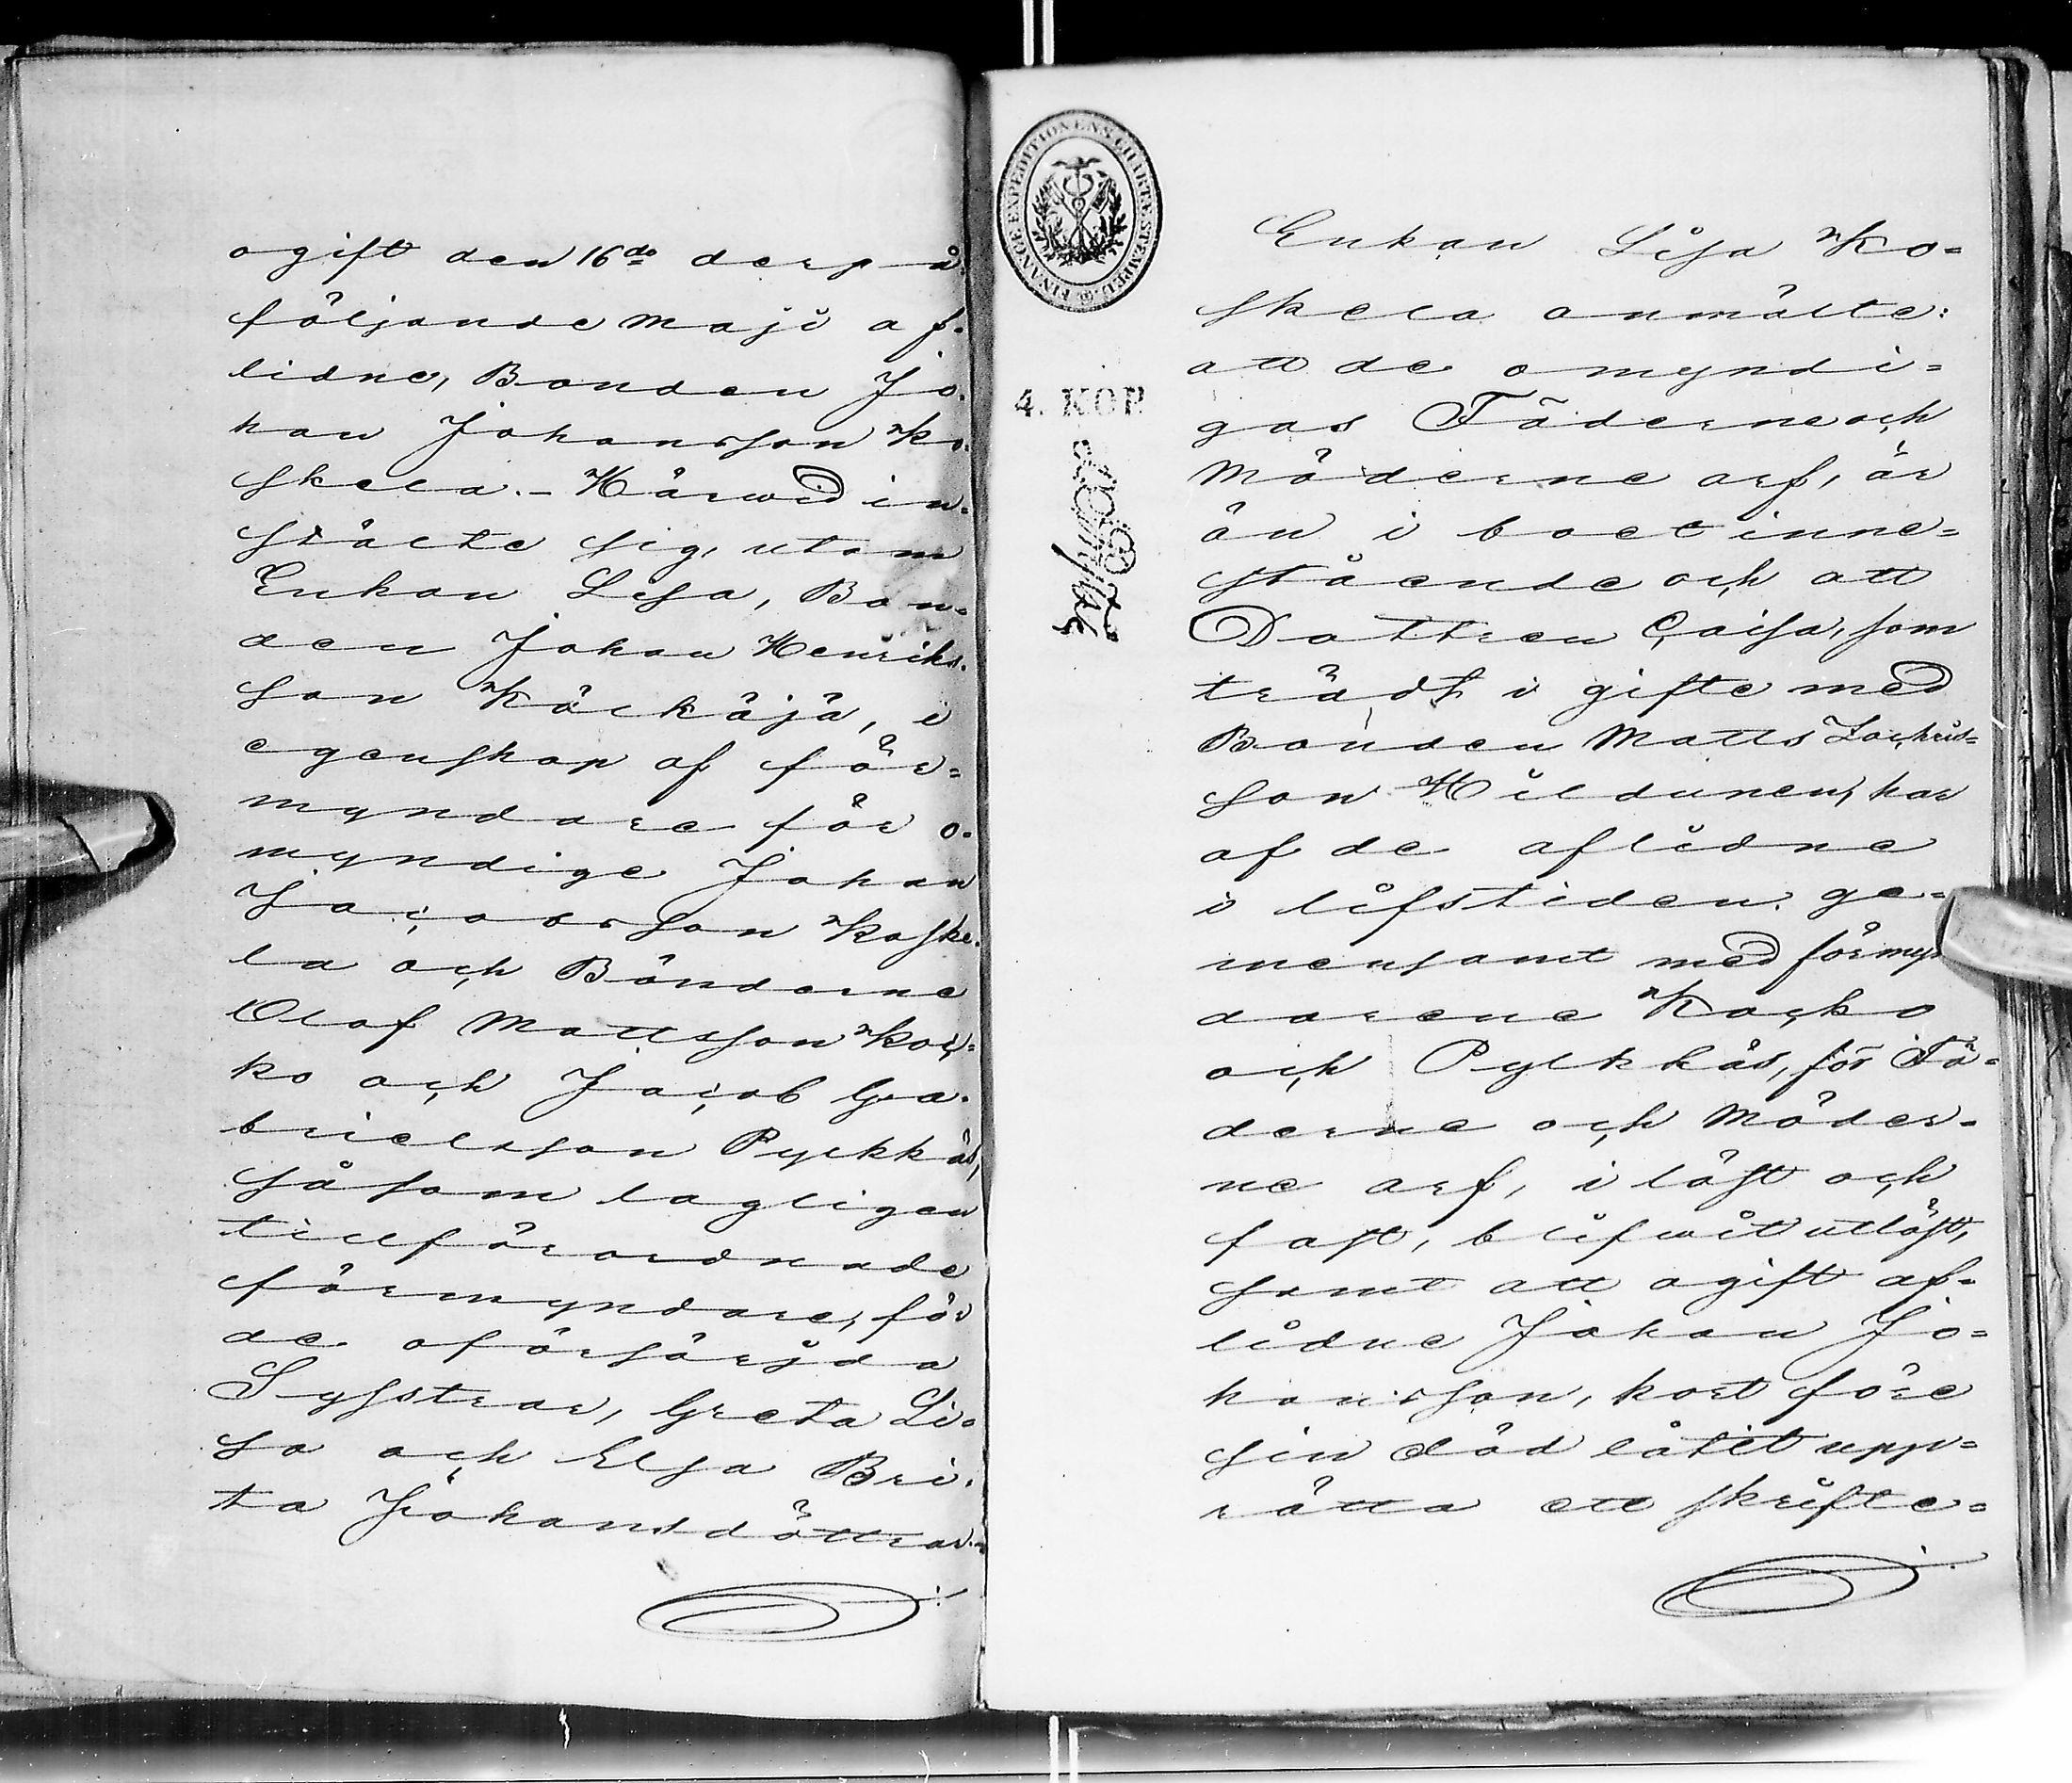 ogift den 16de derpå
följande Maji af-
lidne, Bonden Jo-
han Johansson Ko-
skela. - Härwid in-
stälte sig, utom
Enkan Lisa, Bon-
den Johan Henriks-
son Kälkäjä, i
egenskap af för-
myndare för o-
myndige Johan
Jacobsson Koske-
la och Bönderne
Olof Mattsson Kac-
ko och Jacob Ga-
brielsson Pylkkäs,
såsom lagligen
tillförordnade
förmyndare, för
de oförsörjda
Systrar, Greta Li-
sa och Elsa Bri-
ta Johansdöttrar.-
FINANCE EXPEDITIONENS CHARTE STEMPEL
4. KOP.
Enkan Lisa Ko-
skela anmälte:
att de omyndi-
gas Fäderne och
Möderne arf, är
än i boet inne-
stående och att
Dottren Caisa, som
trädt i gifte med
Bonden Matts Zachris-
son Hildunen, har
af de aflidne
i lifstiden ge-
mensamt med förmyn
darene Kacko
och Pylkkäs, för Fä-
derne och Möder-
ne arf, i löst och
fast, blifwit utlöst,
samt att ogift af-
lidne Johan Jo-
hansson, kort före
sin död låtit upp-
rätta ett skrifte-